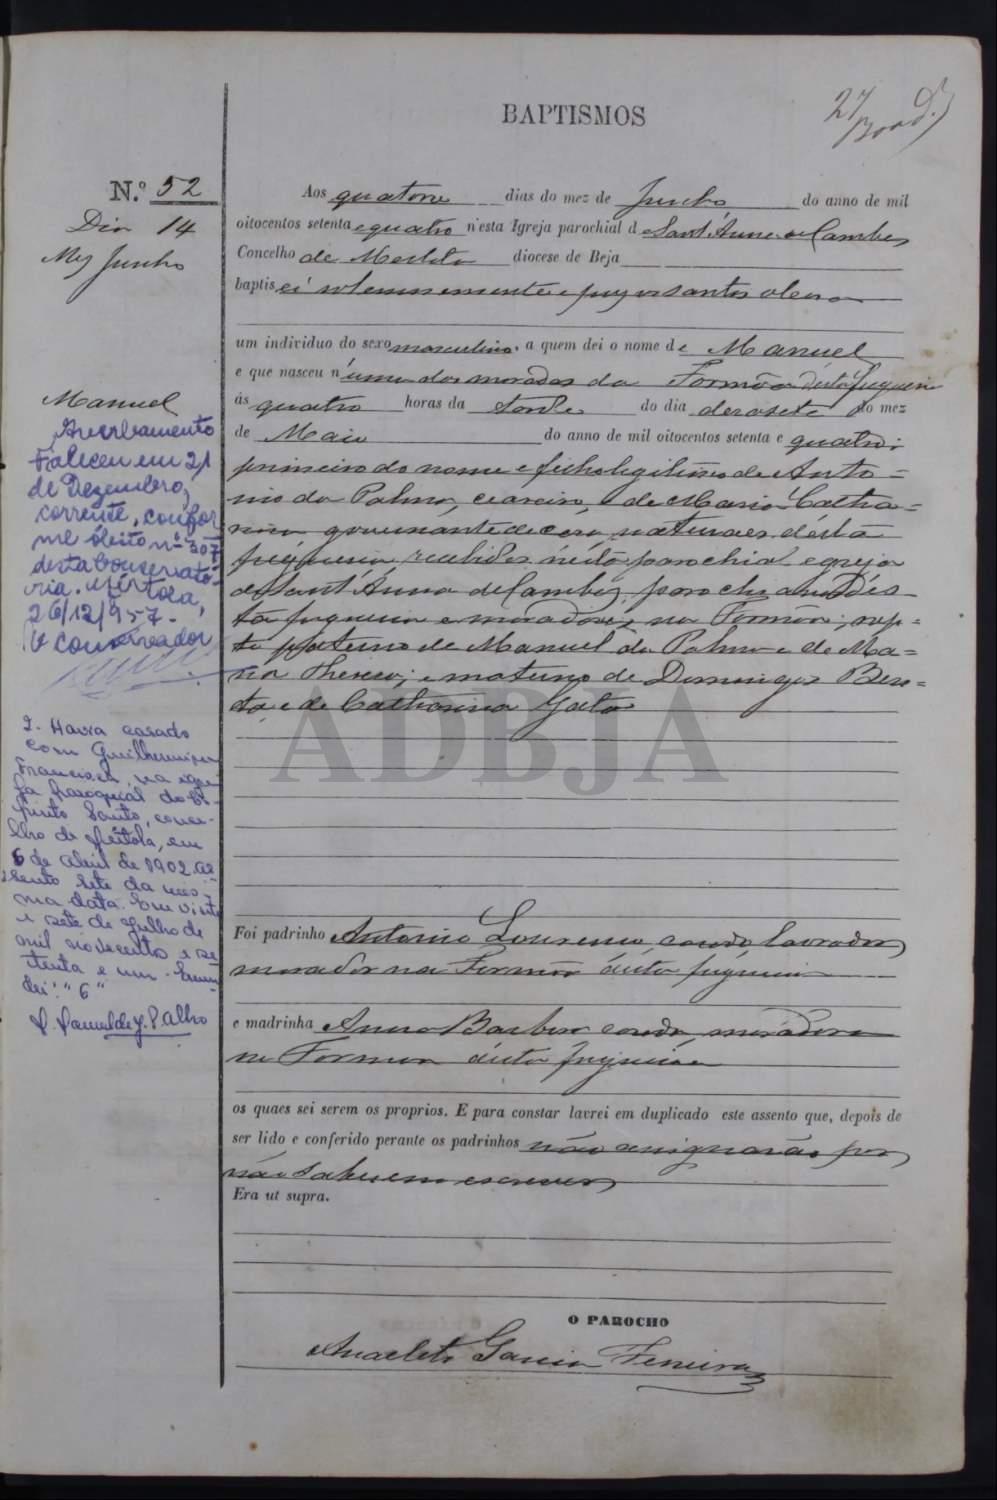 BAPTISMOS
27
N.º 52
Dia 14
Mez Junho
Manuel
Aos quatorze dias do mez de Junho do anno de mil
oitocentos setenta e quatro n'esta Igreja parochial de Sant'Anna de Cambas
Concelho de Mertola diocese de Beja
baptisei solemnemente e puz os santos oleos
um individuo do sexo masculino, a quem dei o nome de Manuel
e que nasceu n'uma das moradas da Formôa desta freguezia
ás quatro horas da tarde do dia dezasete do mez
de Maio do anno de mil oitocentos setenta e quatro:
primeiro do nome e filho legitimo de Anto=
nio da Palma, ceareiro, e de Maria Catha=
rina governante de casa, naturaes désta
freguezia, recebidos nésta parochial egreja
de Sant'Anna de Cambas, parochianos dés-
ta freguezia e moradores na Formôa; nep-
to paterno de Manuel da Palma e de Ma=
ria Thereza; e materno de Domingos Ben=
to, e de Catharina Gata
Foi padrinho Antonio Lourenço, casado, lavrador,
morador na Formôa désta freguezia
e madrinha Anna Barboza casada, moradora
na Formoa désta freguezia
os quaes sei serem os proprios. E para constar lavrei em duplicado este assento que, depois de
ser lido e conferido perante os padrinhos não assignarão por
não saberem escrever
Era ut supra.
O PAROCHO
Anacleto Garcia Ferreira
Averbamento
Faleceu em 21
de Dezembro,
corrente, confor
me óbito nº 307
desta Conservató-
ria. Mértola,
26/12/957-
O Conservador
2- Havia casado
com Guilhermina
Francisca, na igre-
ja paroquial do Es-
pirito Santo, conce-
lho de Mértola, em
6 de Abril de 1902. As-
sento sete da mes-
ma data. Em vinte
e sete de Julho de
mil novecentos e se-
tenta e um. Emen-
dei: "6"
ADBJA